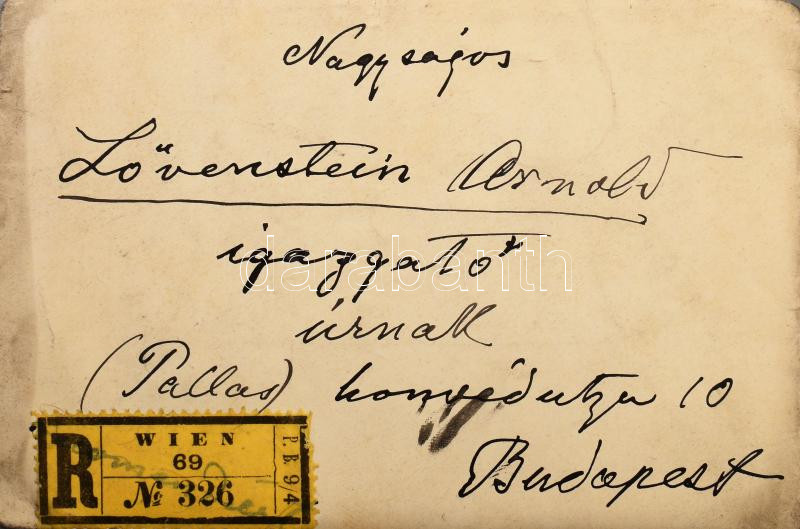 Nagyságos
Lővenstein Arnold
igazgató
úrnak
(Pallas) honvédutza 10
Budapest
R
WIEN
69
№ 326
P. B. 9/4
darabanth